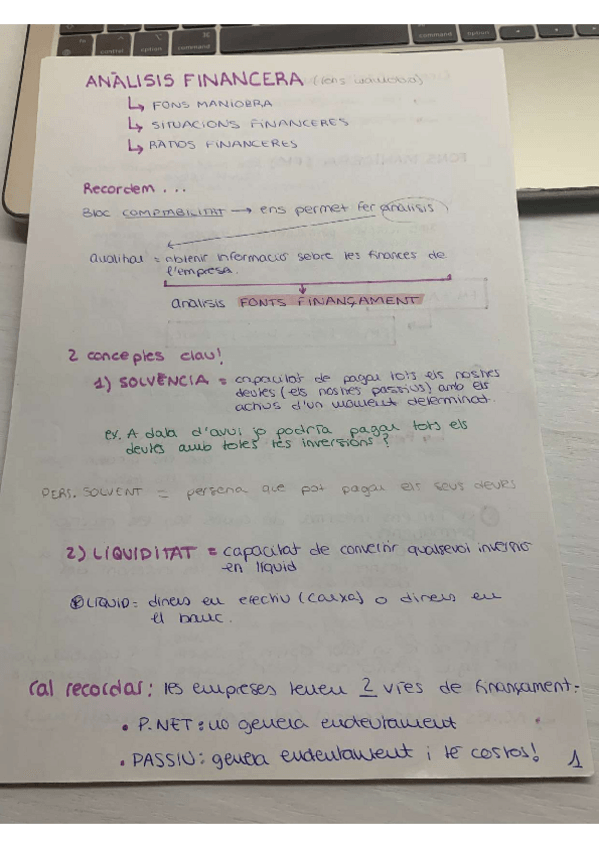 ANÀLISIS FINANCERA (fons maniobra)
↳ FONS MANIOBRA
↳ SITUACIONS FINANCERES
↳ RATIOS FINANCERES
Recordem...
Bloc COMPTABILITAT → ens permet fer anàlisis
qualitat = obtenir informació sobre les finances de
l'empresa.
anàlisis FONTS FINANÇAMENT
2 conceptes clau!
1) SOLVÈNCIA = capacitat de pagar tots els nostres
deutes (els nostres passius) amb els
actius d'un moment determinat.
ex. A data d'avui jo podria pagar tots els
deutes amb totes les inversions?
PERS. SOLVENT = persona que pot pagar els seus deutes
2) LIQUIDITAT = capacitat de convertir qualsevol inversió
en líquid
LÍQUID = diners en efectiu (caixa) o diners en
el banc.
Cal recordar: les empreses tenen 2 vies de finançament:
• P.NET: no genera endeutament
• PASSIU: genera endeutament i té costos!
1
control
option
command
command
option